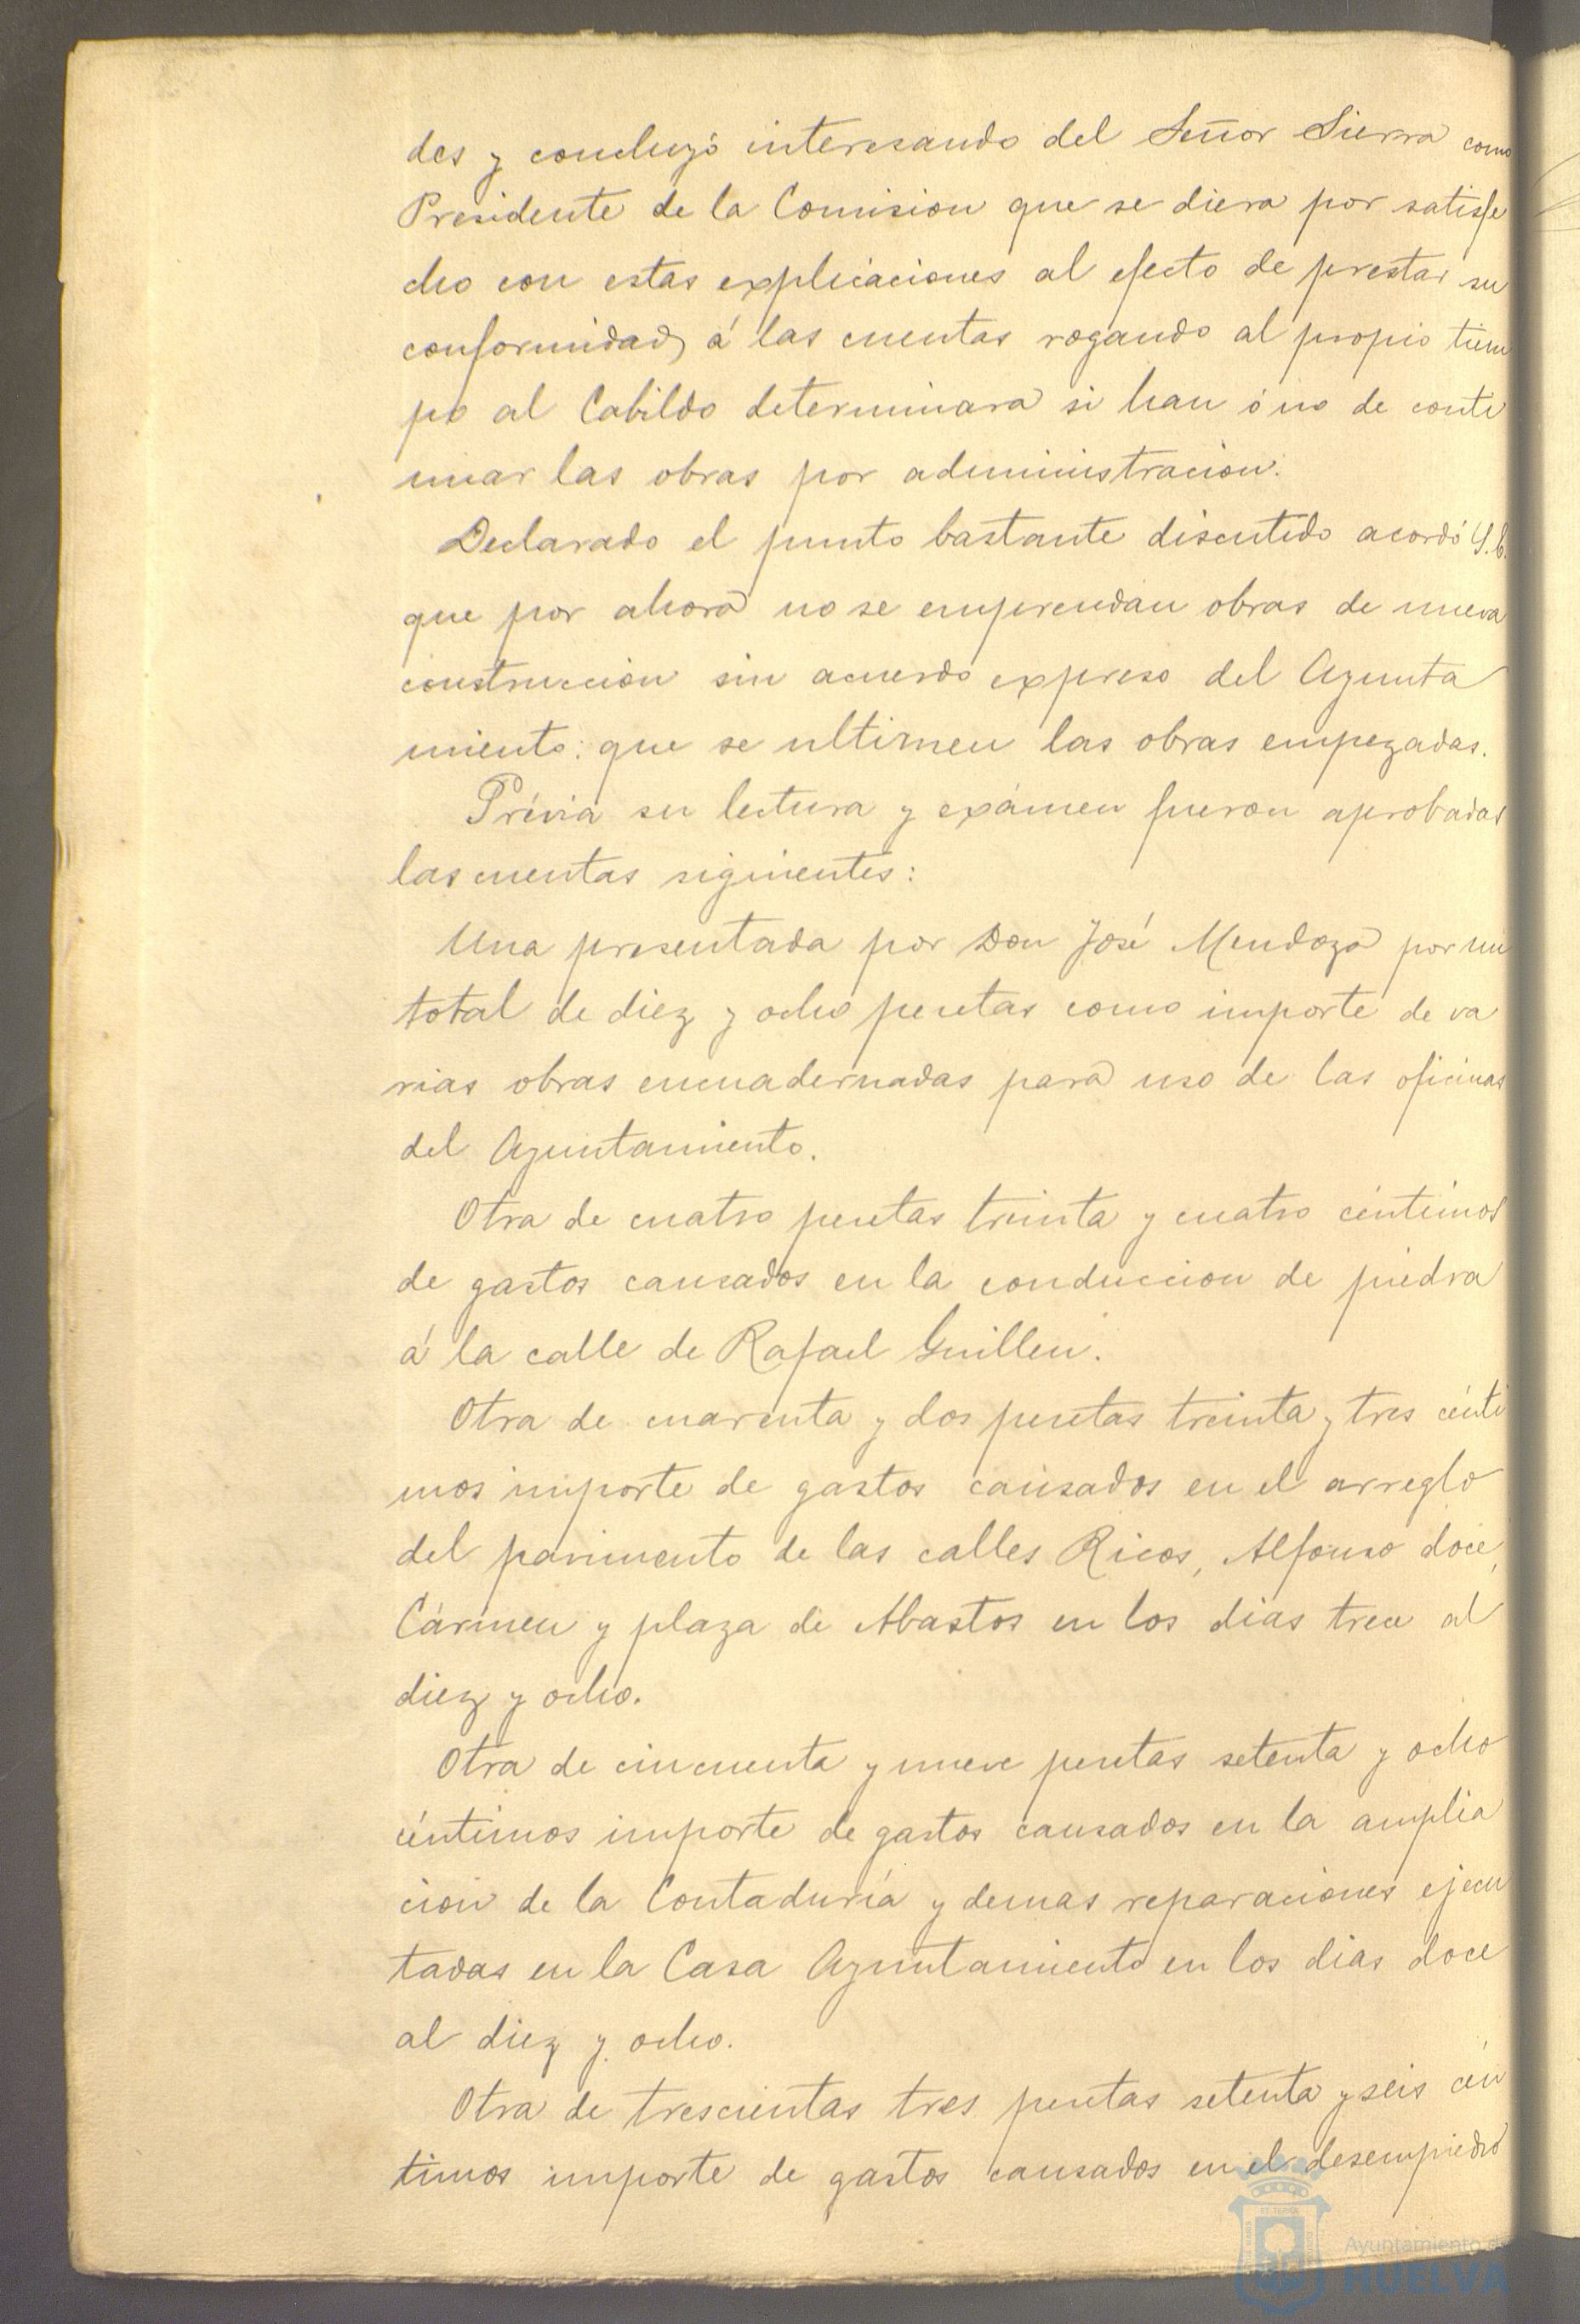 des y concluyó interesando del Señor Sierra como
Presidente de la Comision que se diera por satisfe
cho con estas explicaciones al efecto de prestar su
conformidad á las cuentas rogando al propio tiem
po al Cabildo determinara si han ó no de conti
nuar las obras por administracion.
Declarado el punto bastante discutido acordó S.E.
que por ahora no se emprendan obras de nueva
construccion sin acuerdo expreso del Ayunta
miento: que se ultimen las obras empezadas.
Prévia su lectura y exámen fueron aprobadas
las cuentas siguientes:
Una presentada por Don José Mendoza por un
total de diez y ocho pesetas como importe de va
rias obras encuadernadas para uso de las oficinas
del Ayuntamiento.
Otra de cuatro pesetas treinta y cuatro céntimos
de gastos causados en la conduccion de piedra
á la calle de Rafael Guillen.
Otra de cuarenta y dos pesetas treinta y tres cénti
mos importe de gastos causados en el arreglo
del pavimento de las calles Ricos, Alfonso doce,
Cármen y plaza de Abastos en los dias trece al
diez y ocho.
Otra de cincuenta y nueve pesetas setenta y ocho
céntimos importe de gastos causados en la amplia
cion de la Contaduría y demas reparaciones ejecu
tadas en la Casa Ayuntamiento en los dias doce
al diez y ocho.
Otra de trescientas tres pesetas setenta y seis cén
timos importe de gastos causados en el desempiedro
Ayuntamiento de
HUELVA